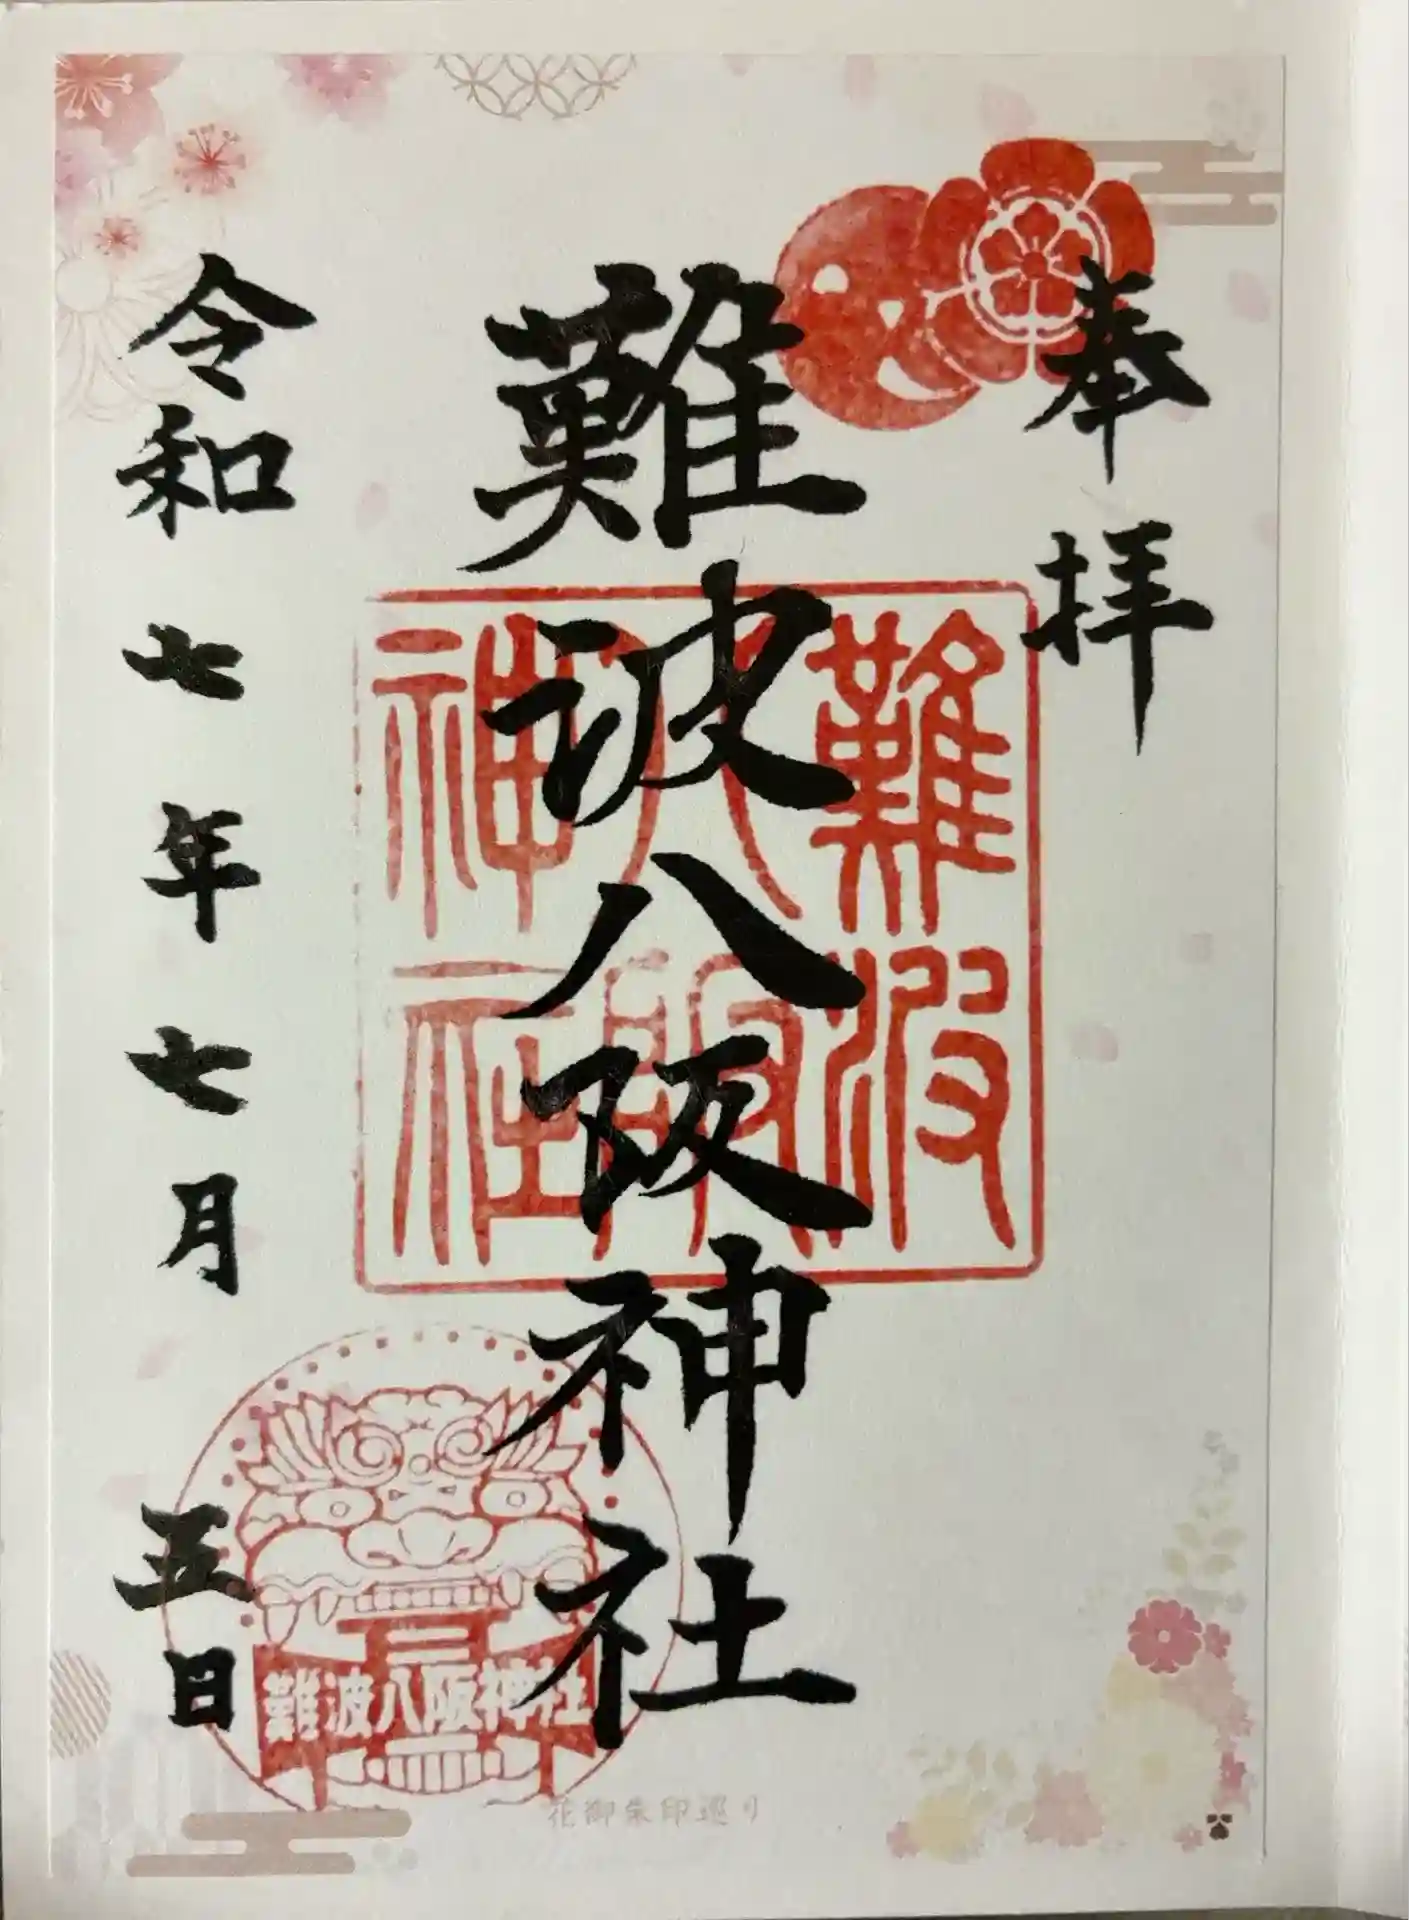 奉拝
難波八阪神社
難波
八阪
神社
令和七年七月五日
難波八阪神社
花御朱印巡り